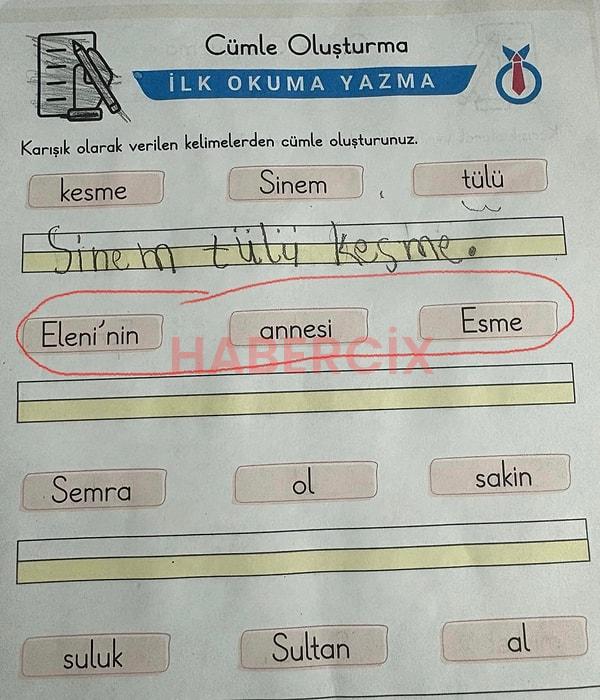 Cümle Oluşturma
İLK OKUMA YAZMA
Karışık olarak verilen kelimelerden cümle oluşturunuz.
kesme Sinem tülü
Sinem tülü kesme.
Eleni'nin annesi Esme
HABERCİX
Semra ol sakin
suluk Sultan al